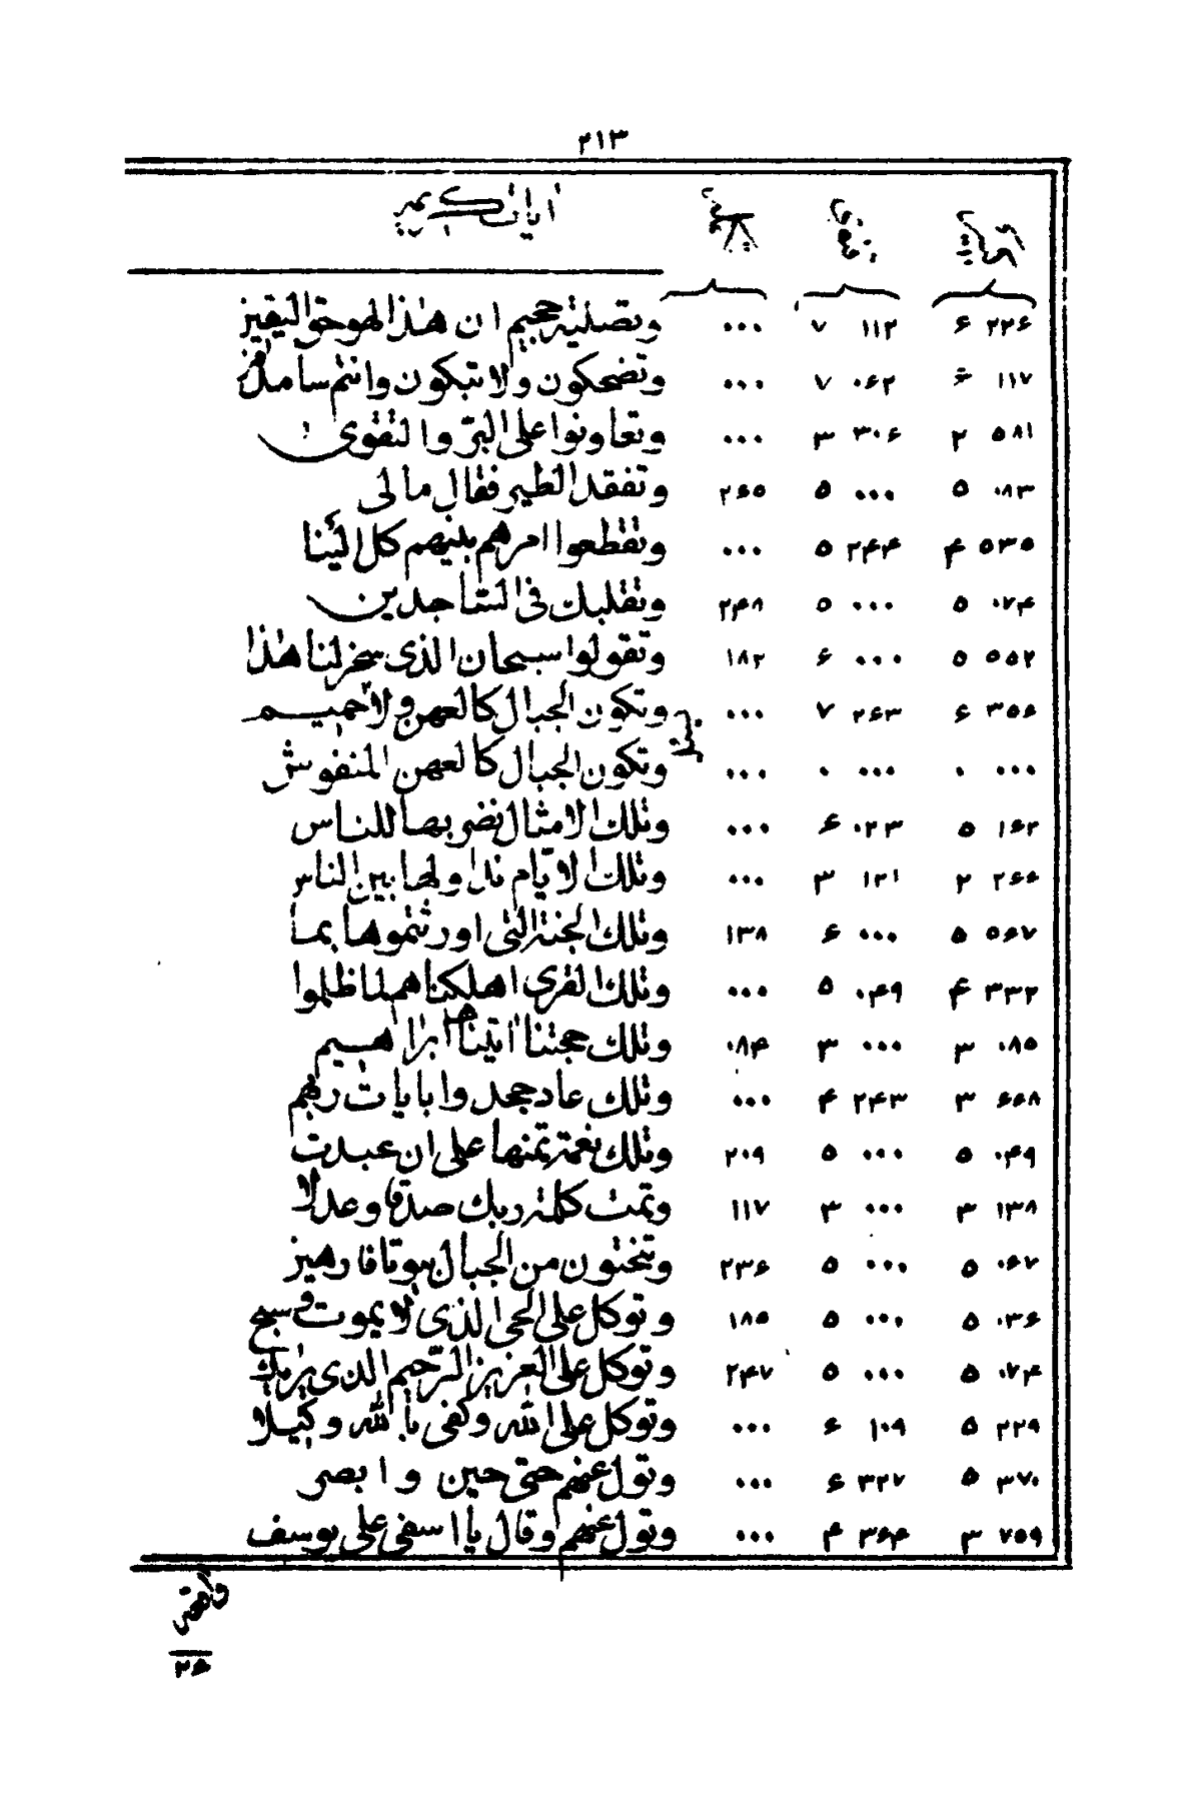 ٢١٣
ايات كريمه
٢٢۶ ۶ ١١٢ ٧ ٠٠٠ وتصلية جحيم ان هذا لهو حق اليقين
١١٧ ۶ ٠۶٢ ٧ ٠٠٠ وتضحكون ولا تبكون وانتم سامدون
۵٨١ ٢ ٣٠۶ ٣ ٠٠٠ وتعاونوا على البر والتقوى
٠٨٣ ۵ ٠٠٠ ۵ ٢۶۵ وتفقد الطير فقال مالى
۵٣۵ ۴ ٢۴۴ ۵ ٠٠٠ وتقطعوا امرهم بينهم كل الينا
٠٧۴ ۵ ٠٠٠ ۵ ٢۴٨ وتقلبك فى الساجدين
۵۵٢ ۵ ٠٠٠ ۶ ١٨٢ وتقولوا سبحان الذى سخر لنا هذا
٣۵۶ ۶ ٢۶٣ ٧ ٠٠٠ وتكون الجبال كالعهن ولا حميم
٠٠٠ ٠ ٠٠٠ ٠ ٠٠٠ وتكون الجبال كالعهن المنفوش
١۶٢ ۵ ٠٢٣ ۶ ٠٠٠ وتلك الامثال نضربها للناس
٢۶۶ ٢ ١٢١ ٣ ٠٠٠ وتلك الايام نداولها بين الناس
۵۶٧ ۵ ٠٠٠ ۶ ١٣٨ وتلك الجنة التى اورثتموها بما
٣٣٢ ۴ ٠۴٩ ۵ ٠٠٠ وتلك القرى اهلكناهم لما ظلموا
٠٨۵ ٣ ٠٠٠ ٣ ٠٨۴ وتلك حجتنا اتيناها ابراهيم
۶۶٨ ٣ ٢۴٣ ۴ ٠٠٠ وتلك عاد جحدوا بايات ربهم
٠۴٩ ۵ ٠٠٠ ۵ ٢٠٩ وتلك نعمة تمنها على ان عبدت
١٣٨ ٣ ٠٠٠ ٣ ١١٧ وتمت كلمة ربك صدقا وعدلا
٠۶٧ ۵ ٠٠٠ ۵ ٢٣۶ وتنحتون من الجبال بيوتا فارهين
٠٣۶ ۵ ٠٠٠ ۵ ١٨۵ وتوكل على الحى الذى لا يموت وسبح
٠٧۴ ۵ ٠٠٠ ۵ ٢۴٧ وتوكل على العزيز الرحيم الذى يريك
٢٢٩ ۵ ١٠٩ ۶ ٠٠٠ وتوكل على الله وكفى بالله وكيلا
٣٧٠ ۵ ٣٢٧ ۶ ٠٠٠ وتول عنهم حتى حين وابصر
٧۵٩ ٣ ٣۶۴ ۴ ٠٠٠ وتول عنهم وقال يا اسفى على يوسف
٢۶